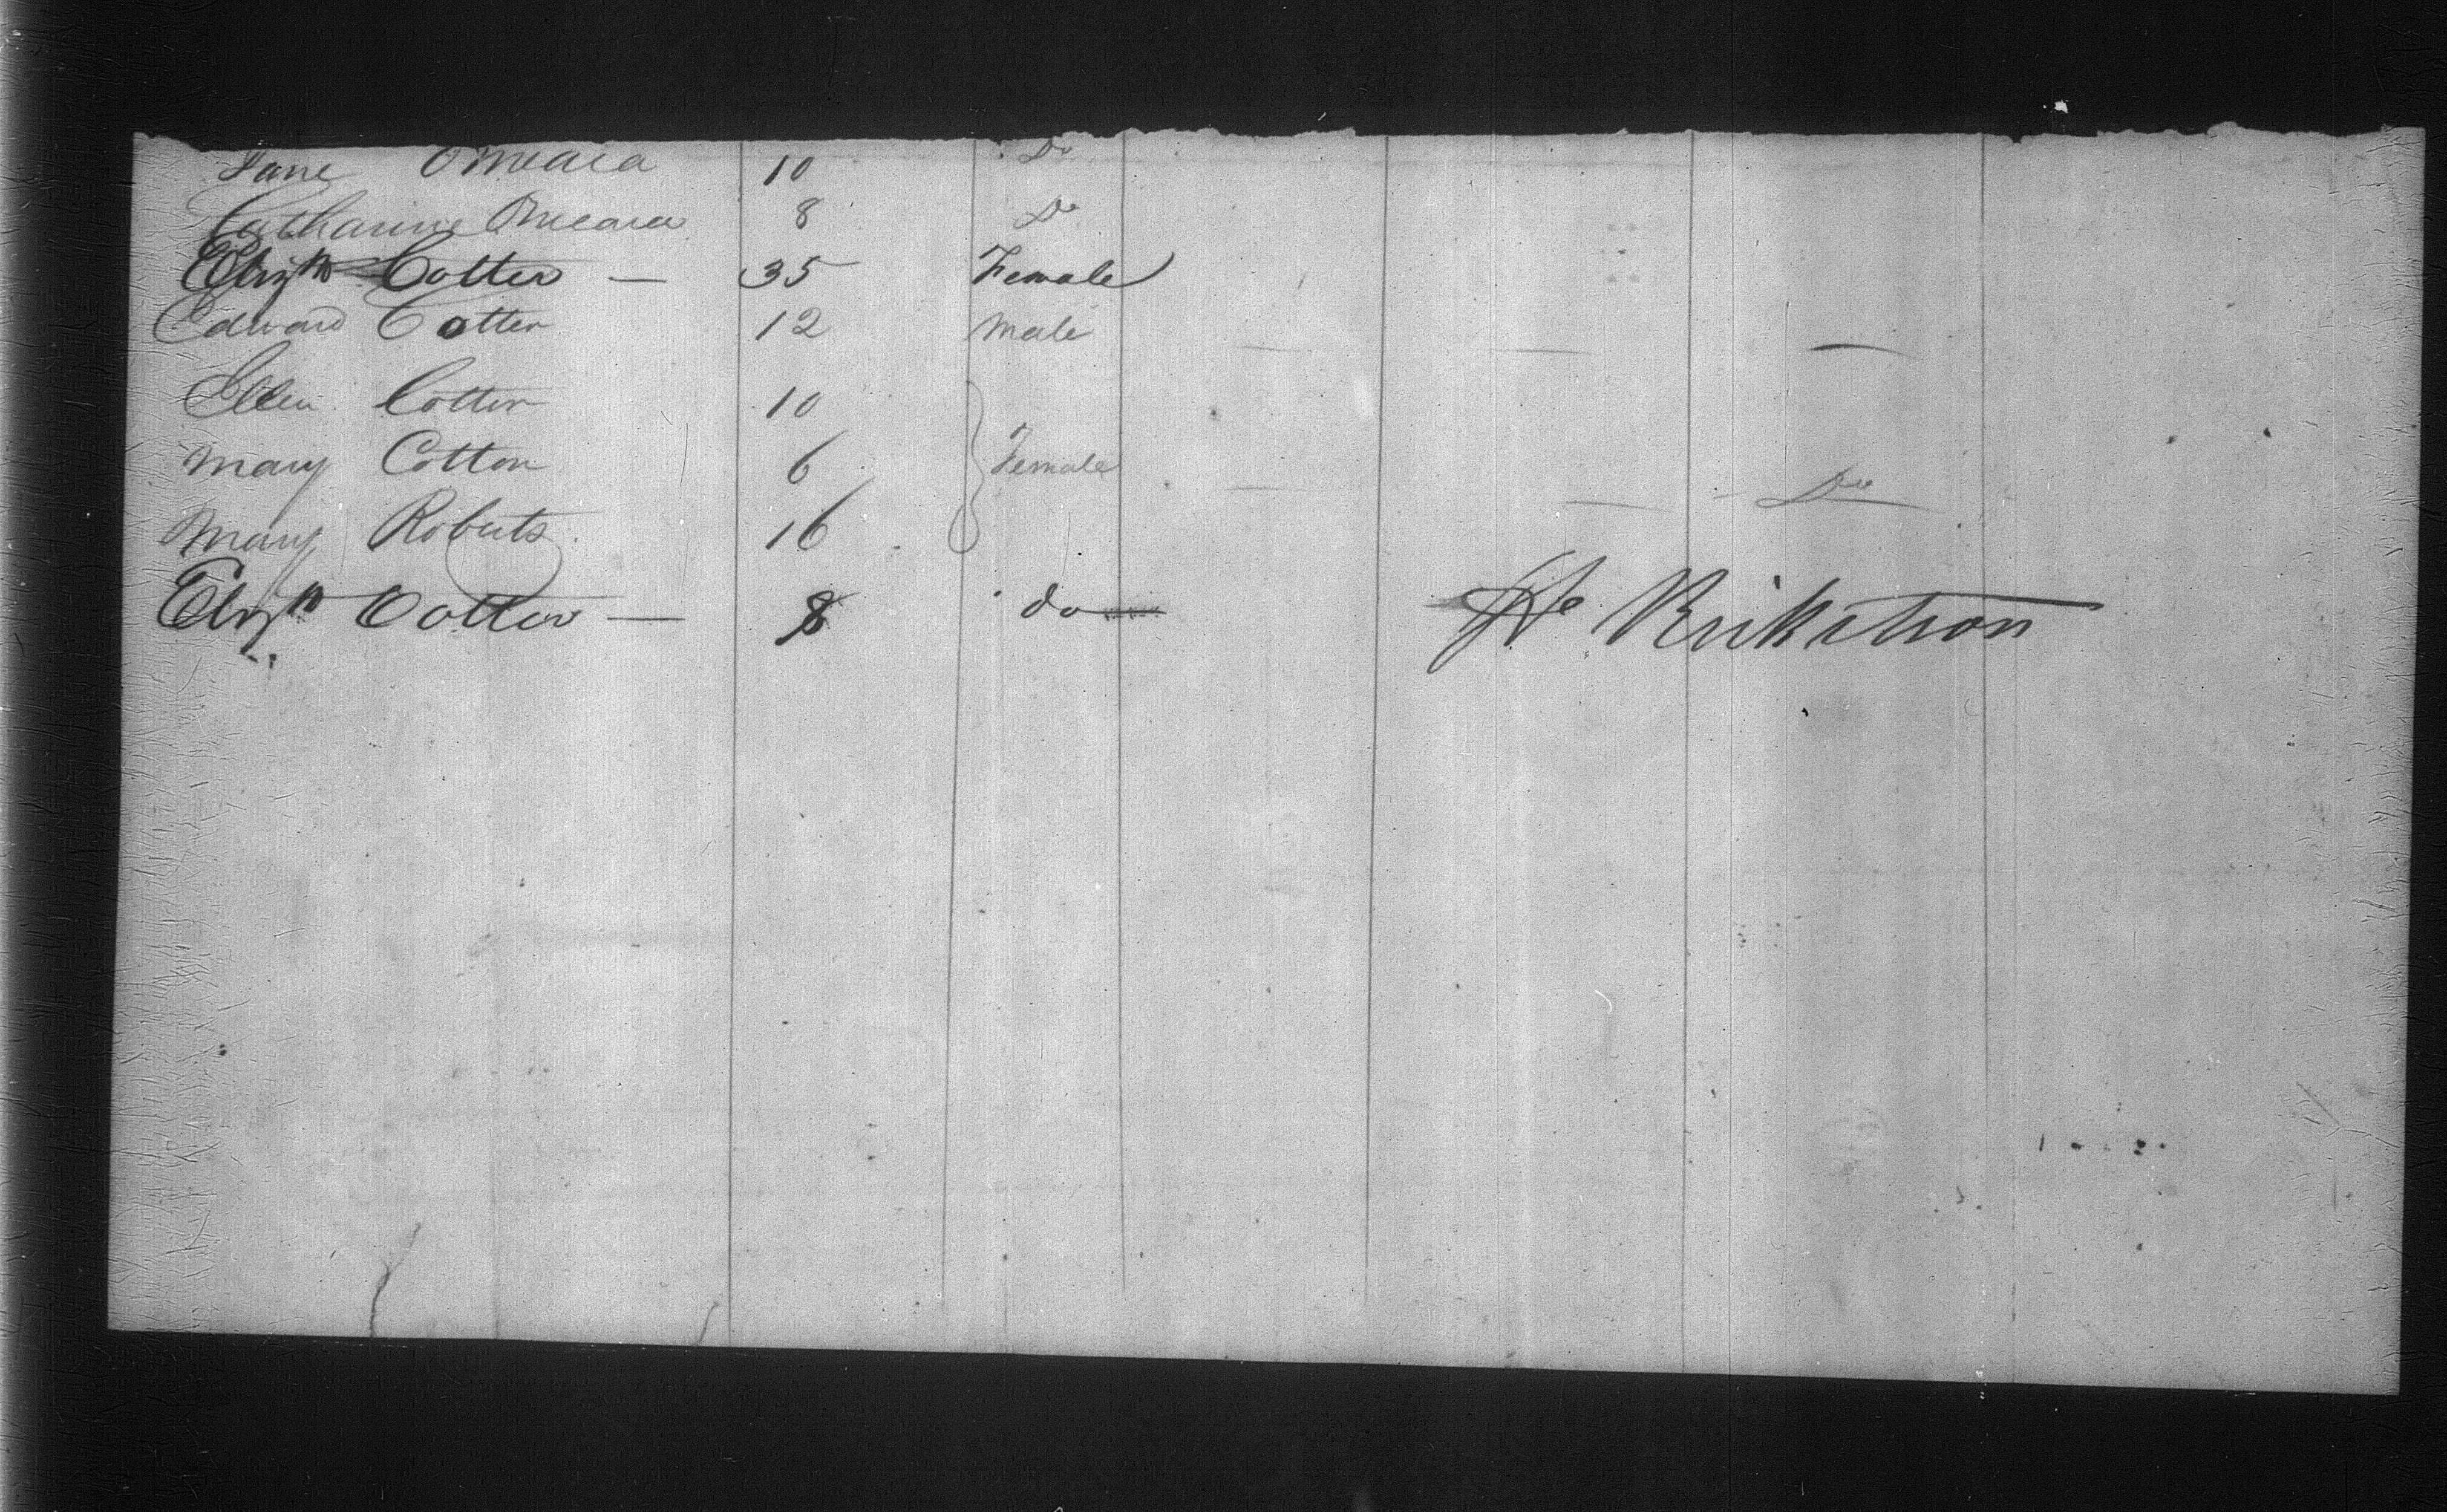 Jane OMeara 10 Do
Catharine OMeara 8 Do
Elizth Cotter — 35 Female
Edward Cotter 12 male —
Ellen Cotter 10
Mary Cotter 6 Female Do
Mary Roberts 16
Elizth Cotter — 8 do
Ricketson